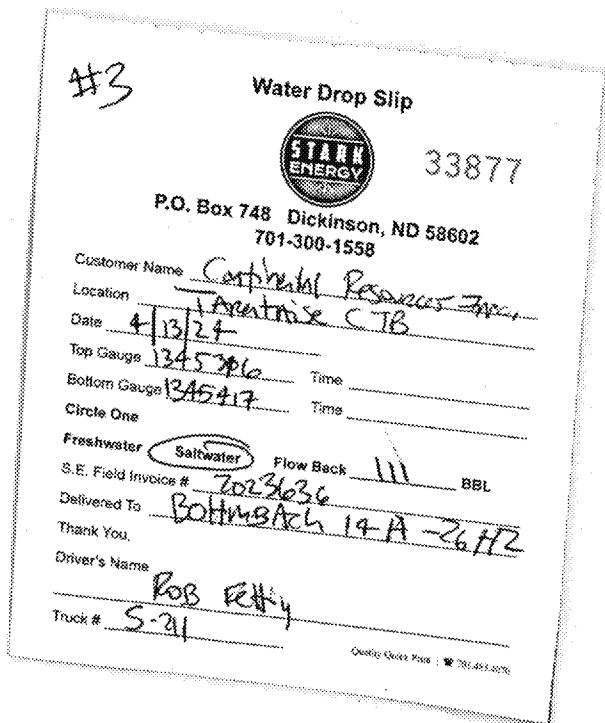 #3
Water Drop Slip
STARK
ENERGY
33877
P.O. Box 748 Dickinson, ND 58602
701-300-1558
Customer Name Continental Resources Inc.
Location CTB
Date 4/13/24
Top Gauge Time
Bottom Gauge 1345417 Time
Circle One
Freshwater Saltwater Flow Back 111 BBL
S.E. Field Invoice # 2023636
Delivered To 14-A -26H2
Thank You,
Driver's Name
Rob
Truck # S-211
Quality Quick Print